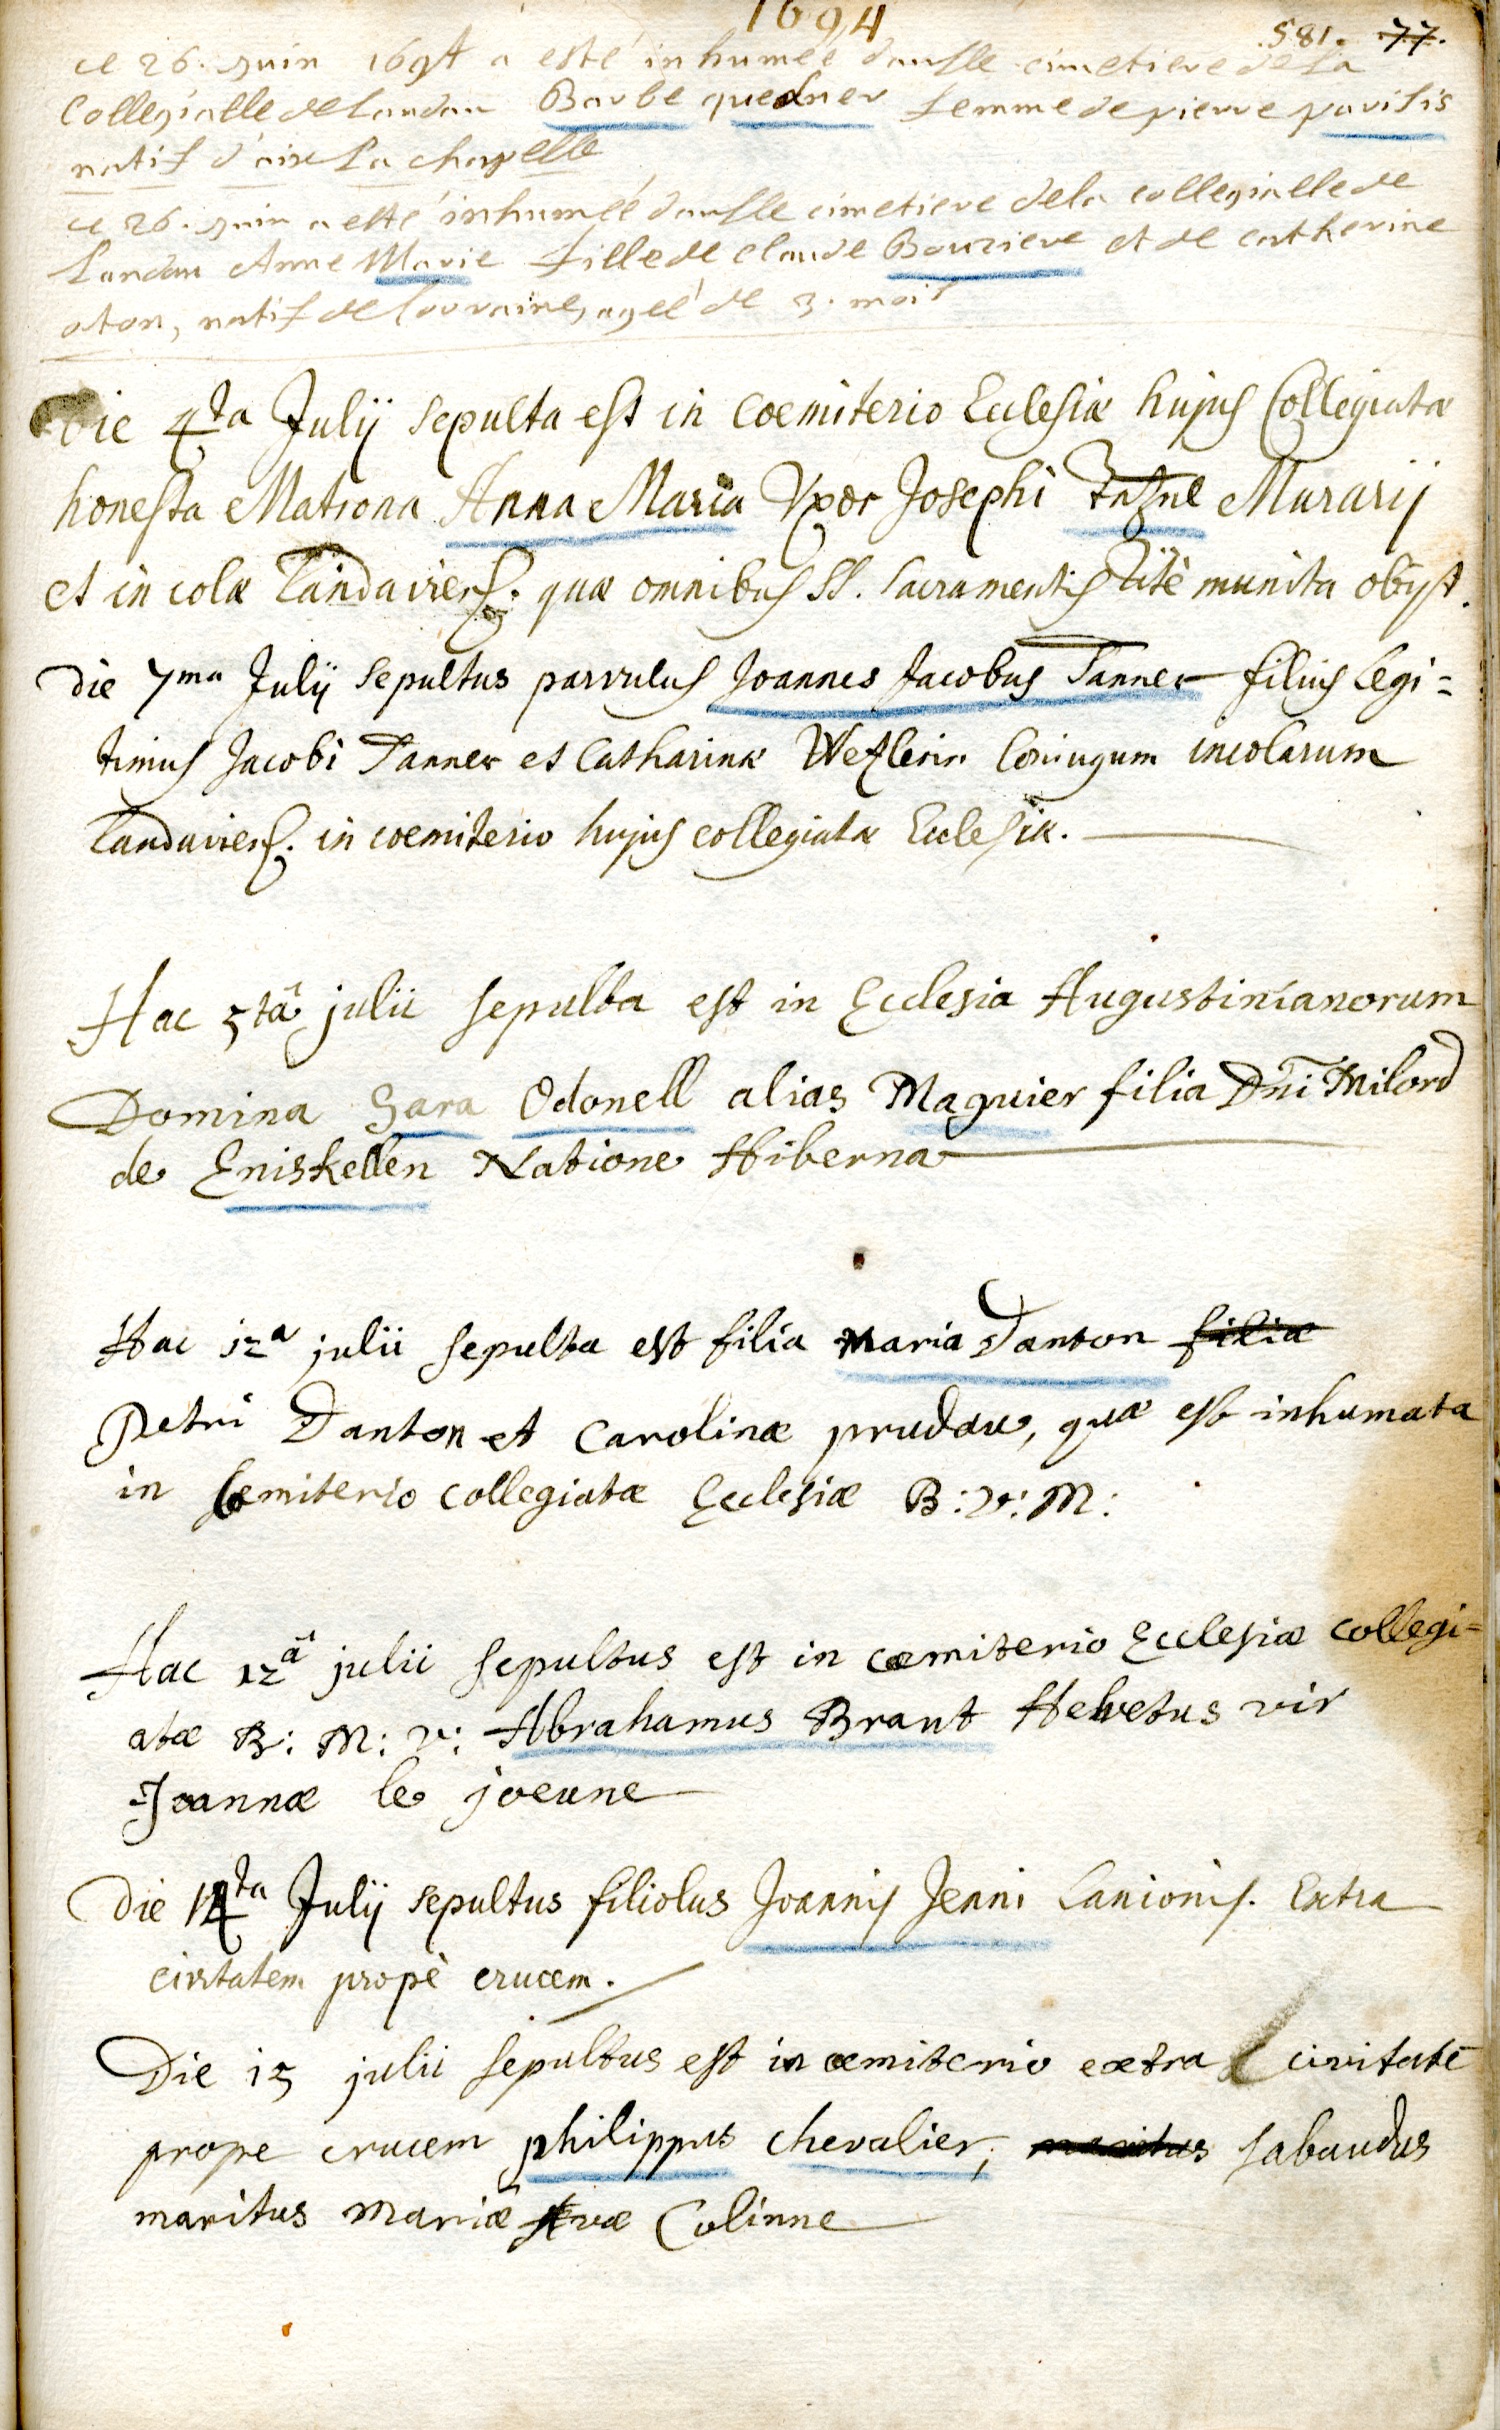 1694
581. 77.
ce 26. juin 1694 a esté inhumée dans le cimetiere de la
Collegialle de Landau Barbe quedner femme de pierre parisis
natif d'aix la chapelle
ce 26. juin a esté inhumée dans le cimetiere de la collegialle de
Landau Anne Marie fille de claude Bouziere et de catherine
oton, natif de lorraine, agée de 3. mois
Die 4ta Julij sepulta est in Coemiterio Ecclesiæ hujus Collegiatæ
honesta Matrona Anna Maria Uxor Josephi Murarij
et incolæ Landaviens. quæ omnibus SS. Sacramentis ritè munita obijt.
Die 7ma Julij sepultus parvulus Joannes Jacobus Tanner filius legi=
timus Jacobi Tanner et Catharinæ Wexlerin Coniugum incolarum
Landaviens. in coemiterio hujus collegiatæ Ecclesiæ.
Hac 5tâ julii sepulta est in Ecclesia Augustinianorum
Domina Sara Odonell alias Maguier filia Dñi Milord
de Eniskellen Natione Hiberna
Hac 12a julii sepulta est filia Maria Danton filiæ
Petri Danton et Carolinæ prudau, quæ est inhumata
in Cœmiterio collegiatæ Ecclesiæ B: V: M:
Hac 12â julii sepultus est in cœmiterio Ecclesiæ collegi=
atæ B: M: V: Abrahamus Brant Helvetus vir
Joannæ le joeune
Die 14ta Julij sepultus filiolus Joannis Jenni Lanionis. Extra
civitatem propè crucem.
Die 15 julii sepultus est in cœmiterio extra civitatē
prope crucem philippus chevalier, maritus sabaudus
maritus Mariæ Evæ Colinne